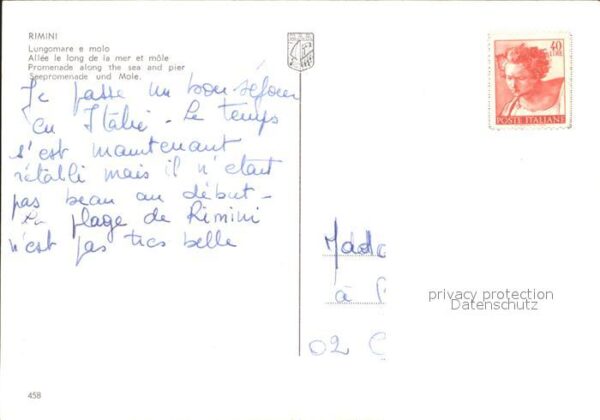 RIMINI
Lungomare e molo
Allée le long de la mer et môle
Promenade along the sea and pier
Seepromenade und Mole.
Je passe un bon séjour
en Italie - Le temps
s'est maintenant
rétabli mais il n'était
pas beau au début -
La plage de Rimini
n'est pas très belle
40
LIRE
POSTE ITALIANE
Mada
à
02 C
privacy protection
Datenschutz
458